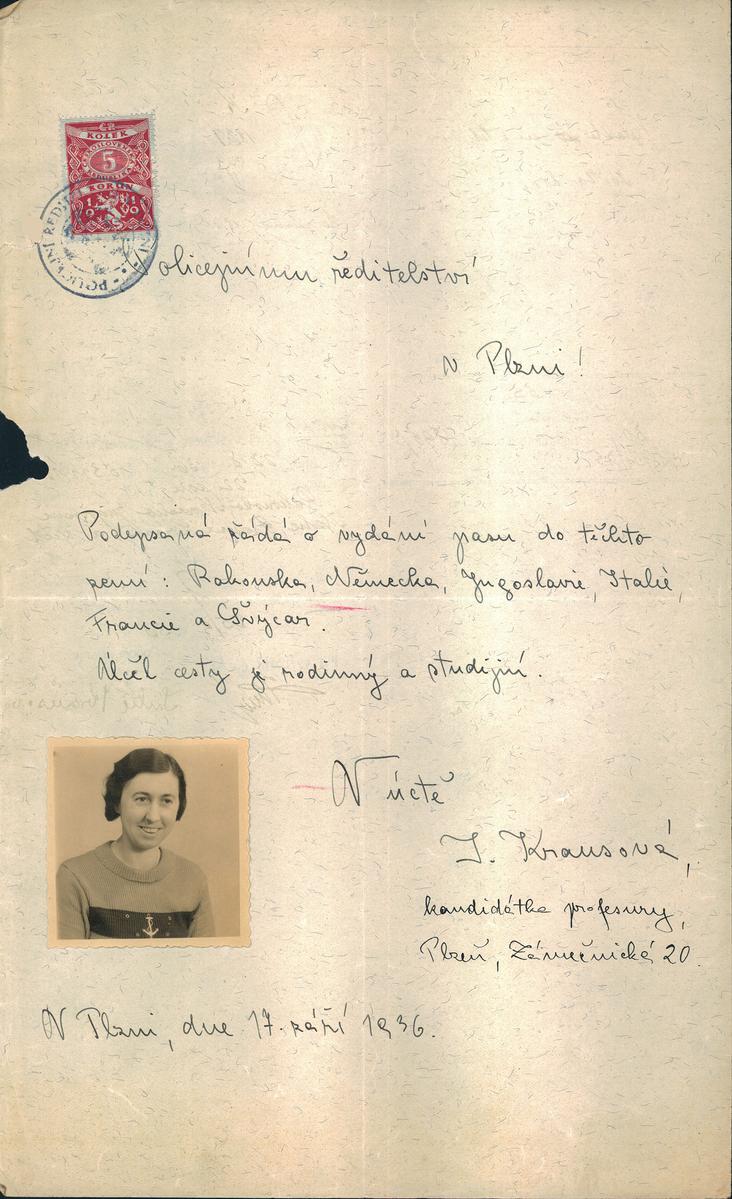 KOLEK
ČESKOSLOVENSKÁ
5
REPUBLIKA
KORUN
1919
POLICEJNÍ ŘEDIT
Policejnímu ředitelství
v Plzni!
Podepsaná žádá o vydání pasu do těchto
zemí: Rakouska, Německa, Jugoslavie, Italie,
Francie a Švýcar.
Účel cesty je rodinný a studijní.
V úctě
J. Krausová,
kandidátka profesury,
Plzeň, Zámečnická 20.
V Plzni, dne 17. září 1936.